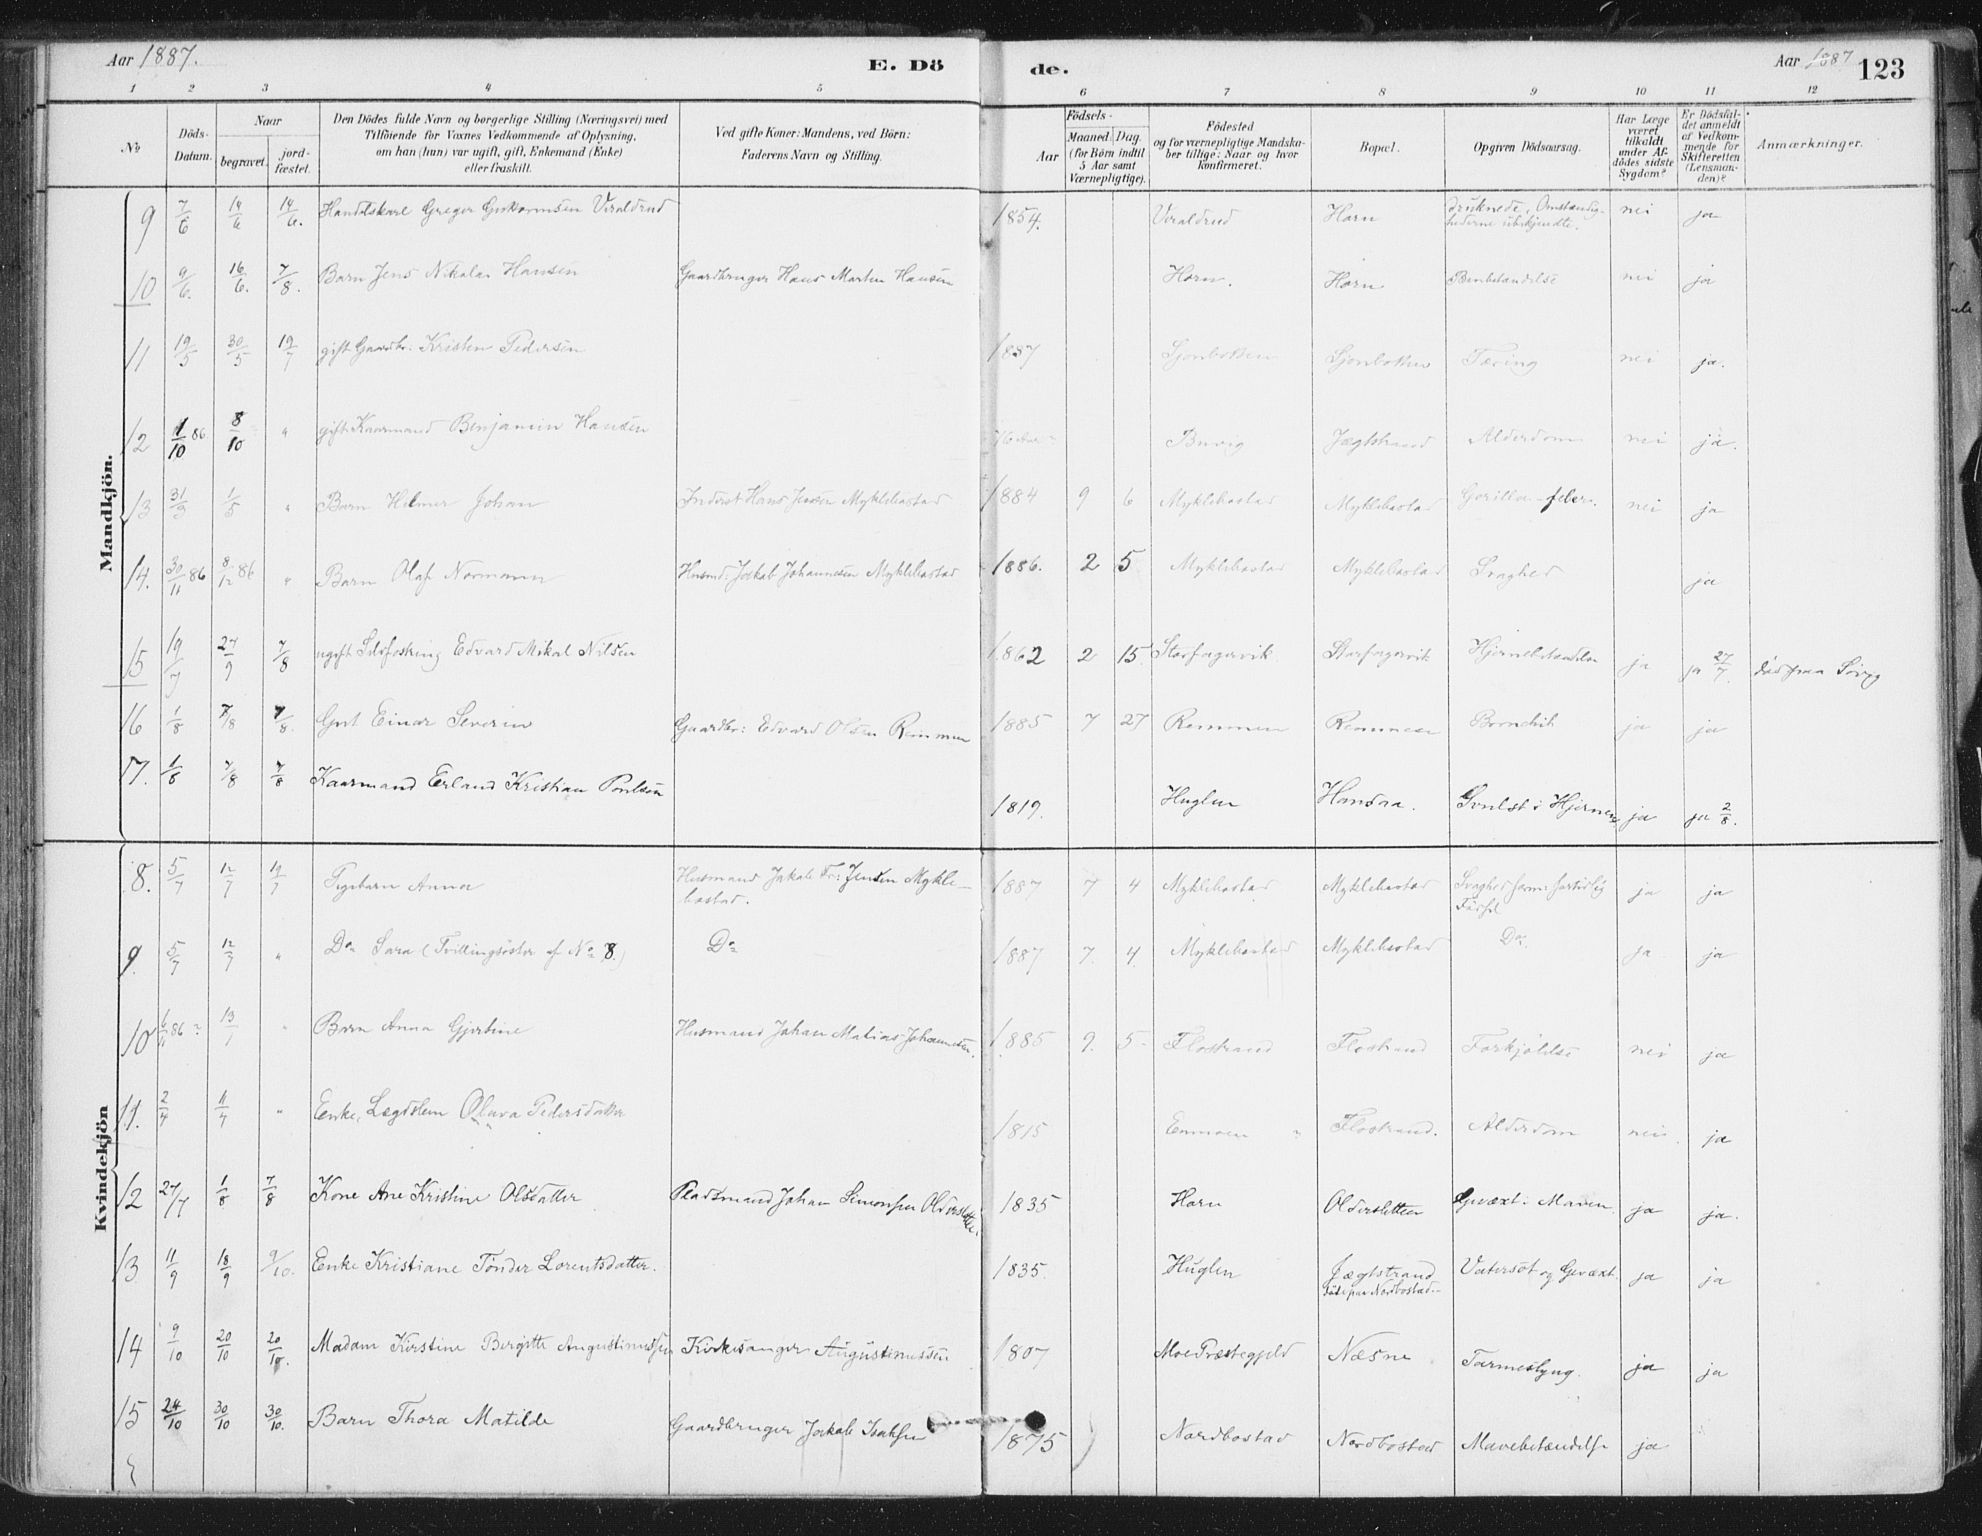 Aar 1887.
E. Dö
de.
Aar 1887
123
1 2 3 4 5 6 7 8 9 10 11 12
No
Döds-Datum.
Naar
begravet.
jord-fæstet.
Den Dödes fulde Navn og borgerlige Stilling (Næringsvei) med
Tilföiende for Voxnes Vedkommende af Oplysning,
om han (hun) var ugift, gift, Enkemand (Enke)
eller fraskilt.
Ved gifte Koner: Mandens, ved Börn:
Faderens Navn og Stilling.
Födsels-
Aar
Maaned. Dag.
(for Börn indtil
5 Aar samt
Værnepligtige).
Födested
og for værnepligtige Mandska-
ber tillige: Naar og hvor
konfirmeret.
Bopæl.
Opgiven Dödsaarsag.
Har Læge
været
tilkaldt
under Af-
dödes sidste
Sygdom?
Er Dödsfal-
det anmeldt
af Vedkom-
mende for
Skifteretten
(Lensman-
den)?
Anmærkninger.
Mandkjön.
9 7/6 14/6 14/6. Handelskarl Greger Viraldrud 1854. Viraldrud Horn druknede, Omstændig-
hederne ubekjendte. nei ja
10 9/6. 16/6. 7/8. Barn Jens Nikolai Hansen Gaardbruger Hans Martin Hansen Horn. Horn nei ja
11 19/5 30/5 19/7 gift Gaardbr. Kristen Pedersen Sjonbotten Sjonbotten Tæring nei ja.
12 1/10 86 8/10 " gift Kaarmand Benjamin Hansen Buvig Jægtstrand Alderdom nei ja.
13 1/5 " Barn Helmer Johan Inderst Hans Jensen Myklebostad 1884 9 6 Myklebostad Myklebostad feber. nei ja
14. 30/11 86 8/12 86 " Barn Olaf Normann Husmd. Jakob Johannesen Myklebostad 1886. 2 5 Myklebostad Myklebostad Svaghed ja
15 19/7 27/9 7/8 ugift Edvard Mikal Nilsen 1862 2 15. Storfagervik Storfagervik Hjernebetændelse ja ja 27/7. död paa
16 1/8 7/8 7/8. Gut Einar Severin Gaardbr: Edvard Olsen Remmen 1885 7 27 Remmen Remmen ja ja
17. 1/8 7/8 7/8 Kaarmand Erland Kristian Poulsen 1819. Huglen Hamdaa. Svulst i Hjernen ja ja 2/8.
Kvindekjön
8. 5/7 12/7 19/7 Pigebarn Anna Husmand Jakob Fr: Jensen Mykle-
bostad. 1887 7 4 Myklebostad Myklebostad Svaghed form: fortidlig
Födsel ja ja
9. 5/7 12/7 " Do Sara (Tvillingsöster af No 8.) Do 1887 7. 4. Myklebostad Myklebostad Do. ja ja
10 86 13/7 " Barn Anna Gjertine Husmand Johan Matias Johannesen. 1885 9. 5 Flostrand Flostrand Forkjölelse nei ja
11. 2/4 11/4 " Enke, Lægdslem Olava Pedersdatter 1815 Enmoen Flostrand. Alderdom nei ja
12 27/7 1/8 7/8 Kone Ane Kristine Olsdatter Pladsmand Johan Simonsen Oldersletten. 1835 Horn Oldersletten Gevæxt i Maven. ja ja.
13 11/9 18/9 9/10. Enke Kristiane Tönder Lorentsdatter. 1835. Huglen Jægtstrand
död paa Nordbostad. Vatersot og Gevæxt. ja ja
14 9/10 20/10 20/10. Madam Kirstine Bergitte Augustinussen Kirkesanger Augustinussen 1807 Moe Præstegjeld Næsne Tarmeslyng. ja ja
15 24/10 30/10 30/10. Barn Thora Matilde Gaardbruger Jakob Isaksen 1875 Nordbostad Nordbostad Mavebetændelse ja